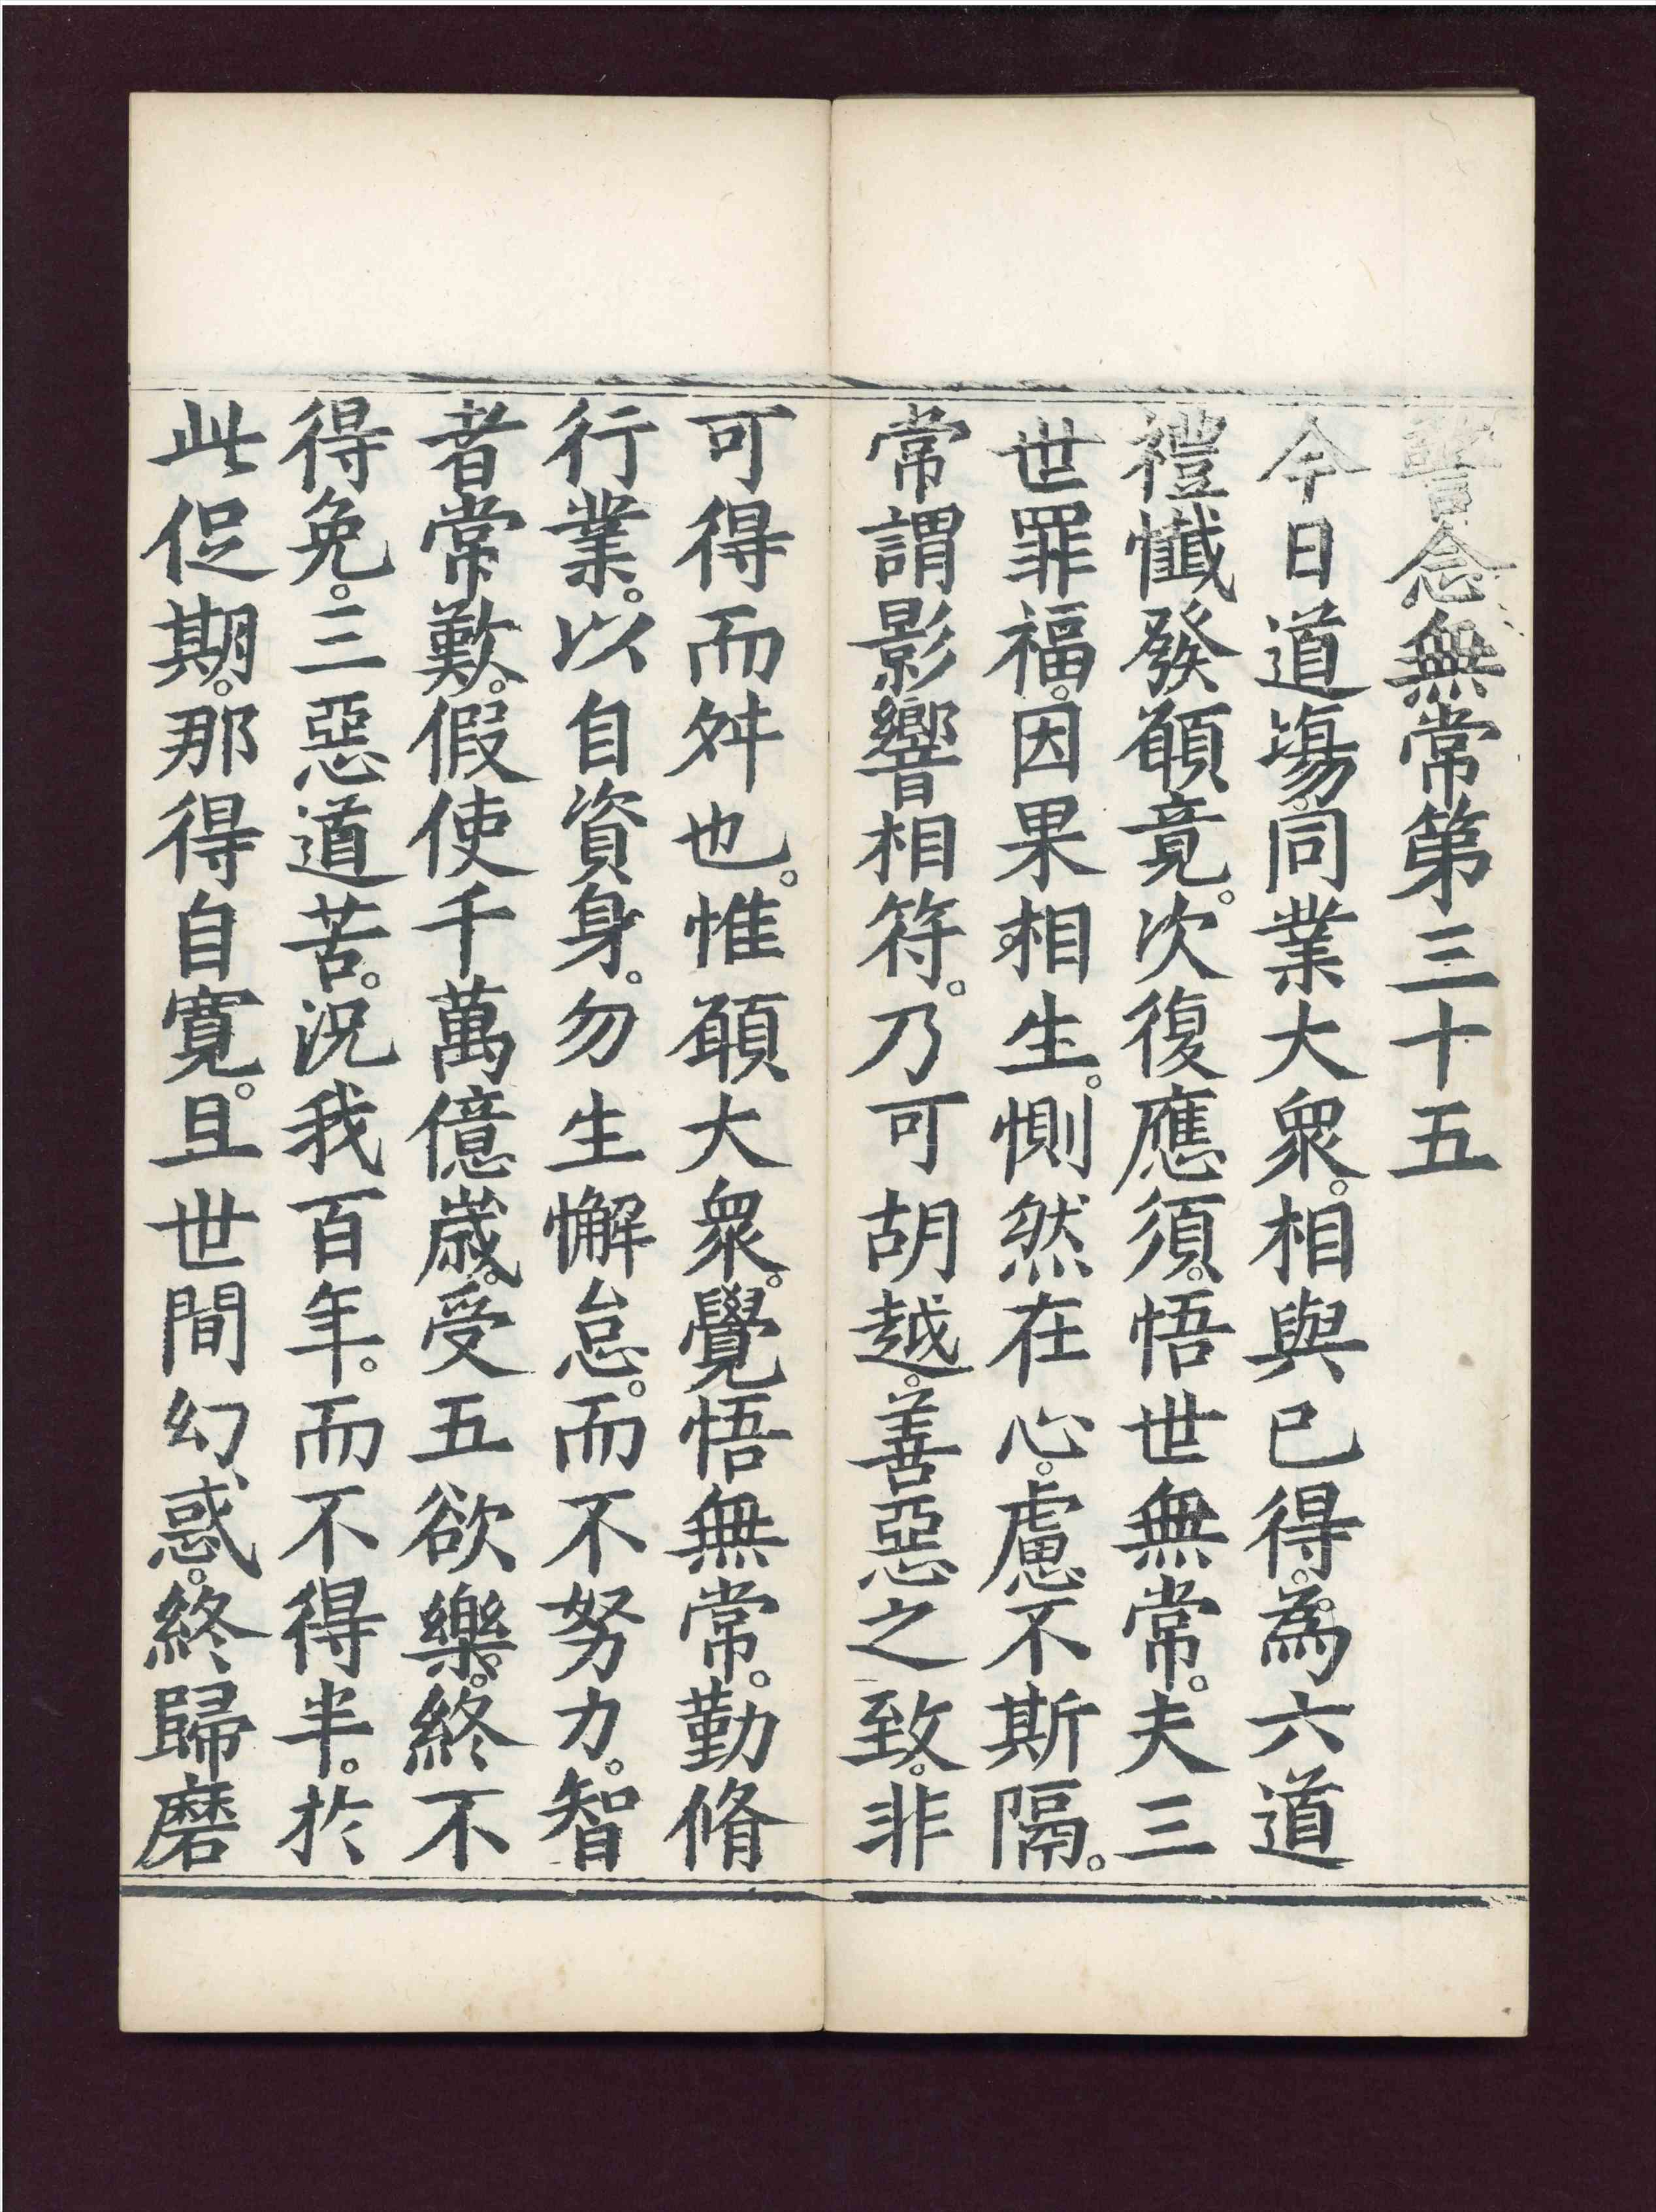 警念無常第三十五
今日道場。同業大衆。相與已得。為六道
禮懺發願竟。次復應須。悟世無常。夫三
世罪福。因果相生。惻然在心。慮不斯隔。
常謂影響相符。乃可胡越。善惡之致。非
可得而舛也。惟願大衆。覺悟無常。勤脩
行業。以自資身。勿生懈怠。而不努力。智
者常歎。假使千萬億歲。受五欲樂。終不
得免。三惡道苦。況我百年。而不得半。於
此促期。那得自寬。且世間幻惑。終歸磨